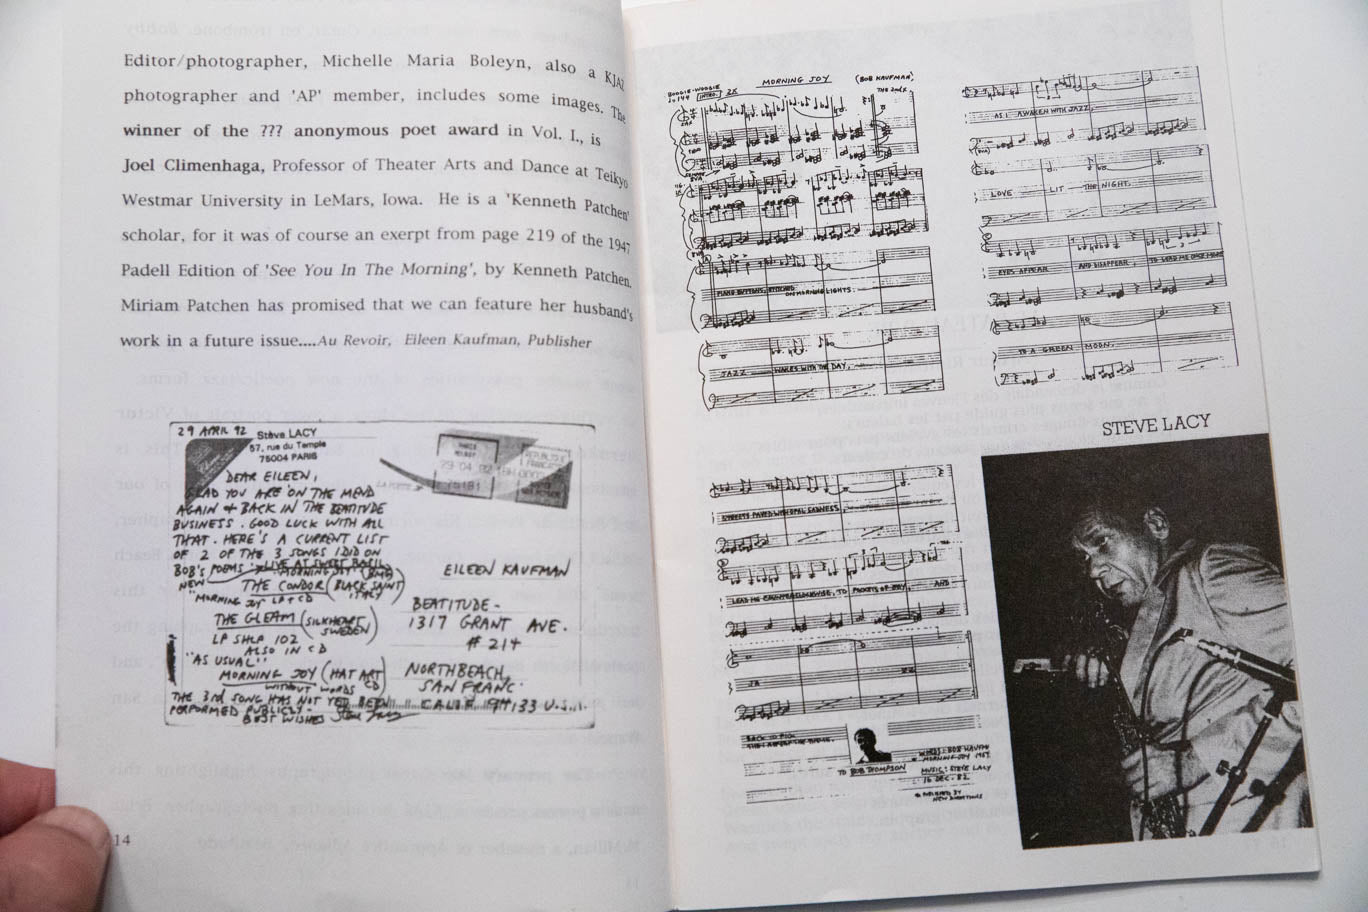 Editor/photographer, Michelle Maria Boleyn, also a KJAZ
photographer and 'AP' member, includes some images. The
winner of the ??? anonymous poet award in Vol. I., is
Joel Climenhaga, Professor of Theater Arts and Dance at Teikyo
Westmar University in LeMars, Iowa. He is a 'Kenneth Patchen'
scholar, for it was of course an exerpt from page 219 of the 1947
Padell Edition of 'See You In The Morning', by Kenneth Patchen.
Miriam Patchen has promised that we can feature her husband's
work in a future issue....Au Revoir, Eileen Kaufman, Publisher
29 APRIL 92
Steve LACY
57, rue du Temple
75004 PARIS
DEAR EILEEN,
GLAD YOU ARE ON THE MEND
AGAIN & BACK IN THE BEATITUDE
BUSINESS. GOOD LUCK WITH ALL
THAT. HERE'S A CURRENT LIST
OF 2 OF THE 3 SONGS I DID ON
BOB'S POEMS:
LIVE AT SWEET BASIL
NEW "MORNING JOY" (
"MORNING JOY LP + CD
THE CONDOR (BLACK SAINT
THE GLEAM (SILKHEART,
SWEDEN)
LP SHLP 102
ALSO IN CD
"AS USUAL"
MORNING JOY (HAT ART
CD
WITHOUT WORDS
THE 3rd SONG HAS NOT YET BEEN
PERFORMED PUBLICLY.
BEST WISHES Steve Lacy
LA POSTE
29-04-92
REPUBLIQUE
FRANCAISE
EILEEN KAUFMAN
BEATITUDE -
1317 GRANT AVE.
# 214
NORTH BEACH,
SAN FRANC.
CALIF. 94133 U.S.A.
14
MORNING JOY
(BOB KAUFMAN)
BOOGIE-WOOGIE
♩=144
INTRO.
2X
THE 2ND X
PIANO BUTTONS, STITCHED
ON MORNING LIGHTS.
JAZZ WAKES WITH THE DAY,
AS I AWAKEN WITH JAZZ,
LOVE LIT THE NIGHT.
EYES APPEAR AND DISAPPEAR TO LEAD ME ONCE MORE
TO A GREEN MOON.
STEVE LACY
STREETS PAVED WITH OPAL SADNESS,
LEAD ME COUNTERCLOCKWISE, TO POCKETS OF JOY, AND
JA
ZZ
TO BOB THOMPSON
WORDS: BOB KAUFMAN
MORNING JOY 1967
MUSIC: STEVE LACY
16 DEC. 82